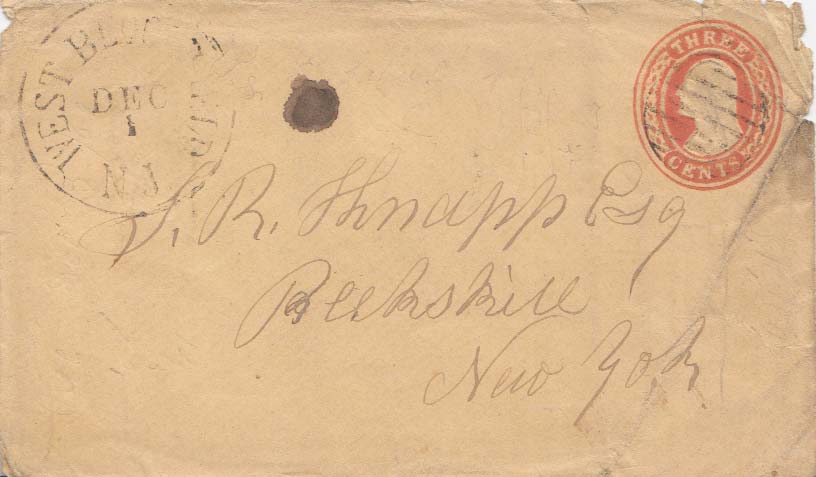 WEST BLOOMFIELD
DEC
1
N.J
THREE
CENTS
S. R. Knapp Esq
Peekskill
New York